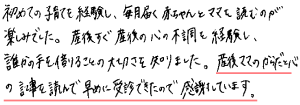 初めての子育てを経験し、毎月届く赤ちゃんとママを読むのが
楽しみでした。産後すぐ産後の心の不調を経験し、
誰かの手を借りることの大切さを知りました。産後ママのからだと心
の記事を読んで早めに受診できたので感謝しています。